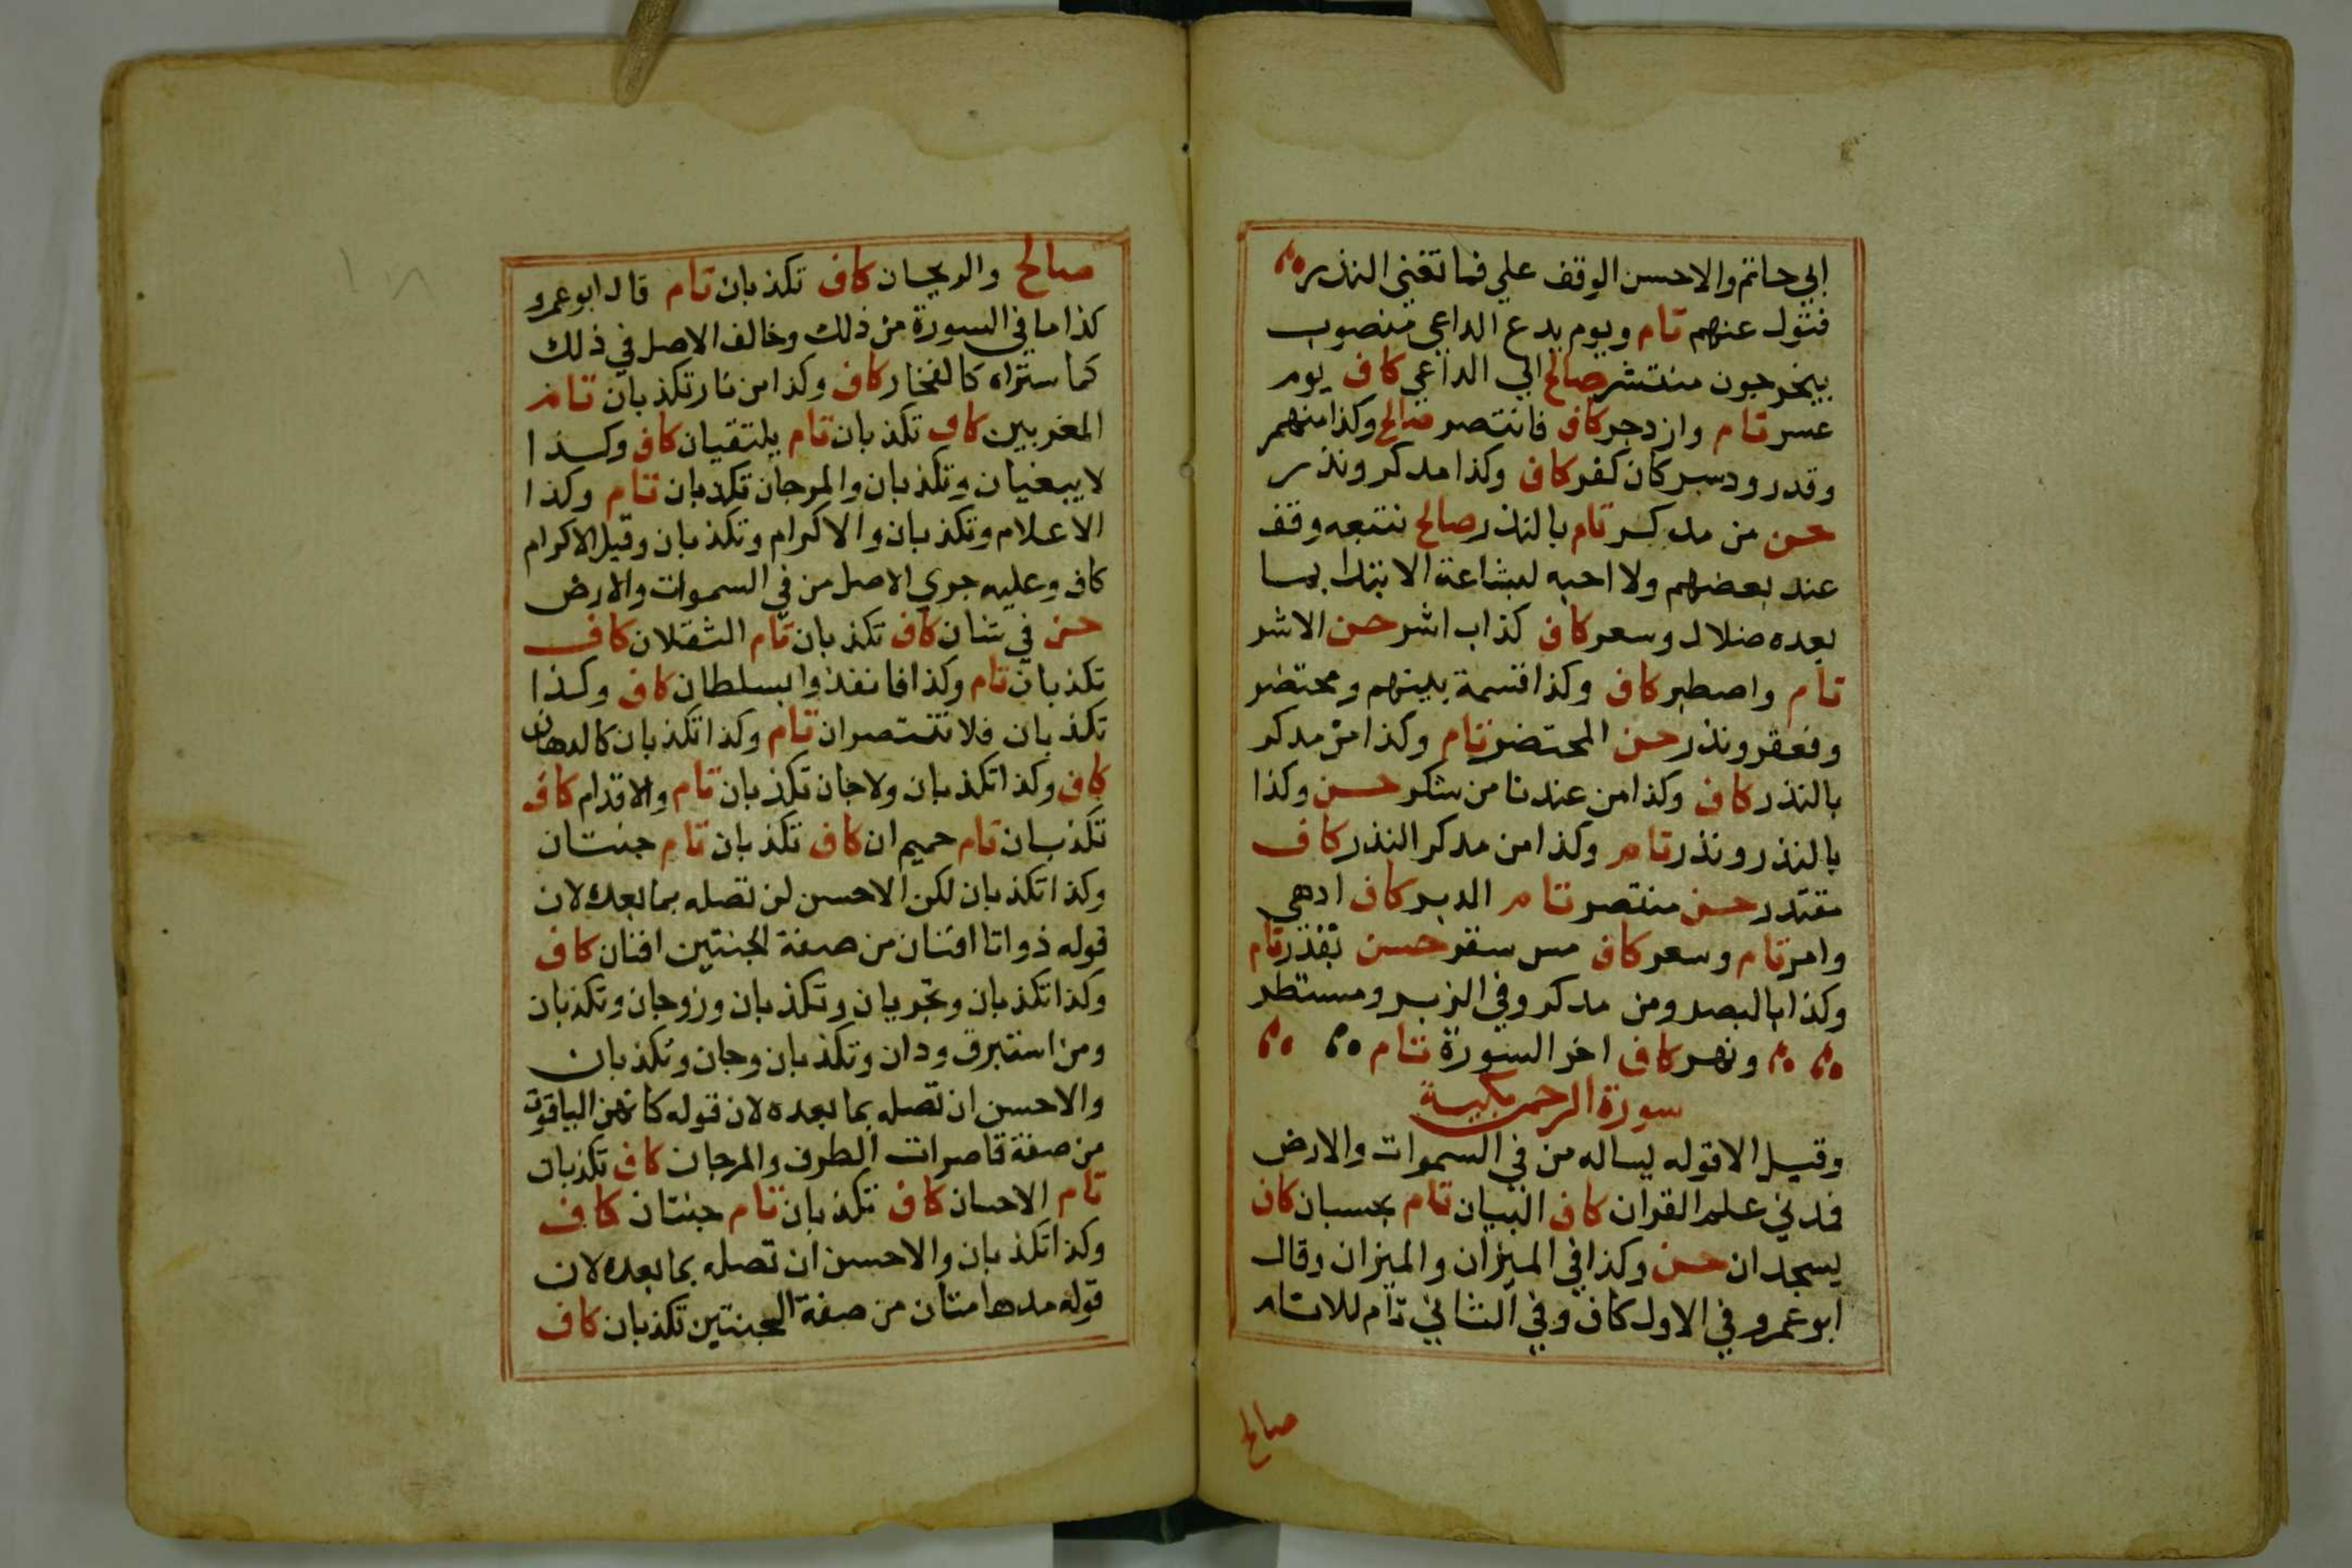 ابي حاتم والاحسن الوقف علي فما تغني النذر
فتول عنهم تام ويوم يدع الداعي منصوب
بيخرجون منتشر صالح الي الداعي كاف يوم
عسر تام وازدجر كاف فانتصر صالح وكذا منهمر
وقدر ودسر كان كفر كاف وكذا مدكر ونذر
حسن من مدكر تام بالنذر صالح نتبعه وقف
عند بعضهم ولا احبه لبشاعة الابتدا بما
بعده ضلال وسعر كاف كذاب اشر حسن الاشر
تام واصطبر كاف وكذا قسمة بينهم ومحتضر
وفعقر ونذر حسن المحتضر تام وكذا من مدكر
بالنذر كاف وكذا من عندنا من شكر حسن وكذا
بالنذر ونذر تام وكذا من مدكر النذر كاف
مقتدر حسن منتصر تام الدبر كاف ادهي
وامر تام وسعر كاف مس سقر حسن بقدر تام
وكذا بالبصر ومن مدكر وفي الزبر ومستطر
ونهر كاف اخر السورة تام
سورة الرحمن مكية
وقيل الا قوله يساله من في السموات والارض
فمدني علم القران كاف البيان تام بحسبان كاف
يسجدان حسن وكذا في الميزان والميزان وقال
ابو عمرو في الاول كاف وفي الثاني تام للانام
صالح
صالح والريحان كاف تكذبان تام قال ابو عمرو
كذا ما في السورة من ذلك وخالف الاصل في ذلك
كما ستراه كالفخار كاف وكذا من نار تكذبان تام
المغربين كاف تكذبان تام يلتقيان كاف وكذا
لا يبغيان وتكذبان والمرجان تكذبان تام وكذا
الاعلام وتكذبان والاكرام وتكذبان وقيل الاكرام
كاف وعليه جري الاصل من في السموات والارض
حسن في شان كاف تكذبان تام الثقلان كاف
تكذبان تام وكذا فانفذوا بسلطان كاف وكذا
تكذبان فلا تنتصران تام وكذا تكذبان كالدهان
كاف وكذا تكذبان ولا جان تكذبان تام والاقدام كاف
تكذبان تام حميم ان كاف تكذبان تام جنتان
وكذا تكذبان لكن الاحسن لن تصله بما بعده لان
قوله ذواتا افنان من صفة الجنتين افنان كاف
وكذا تكذبان وتجريان وتكذبان وزوجان وتكذبان
ومن استبرق ودان وتكذبان وجان وتكذبان
والاحسن ان تصله بما بعده لان قوله كانهن الياقوت
من صفة قاصرات الطرف والمرجان كاف تكذبان
تام الاحسان كاف تكذبان تام جنتان كاف
وكذا تكذبان والاحسن ان تصله بما بعده لان
قوله مدهامتان من صفة الجنتين تكذبان كاف